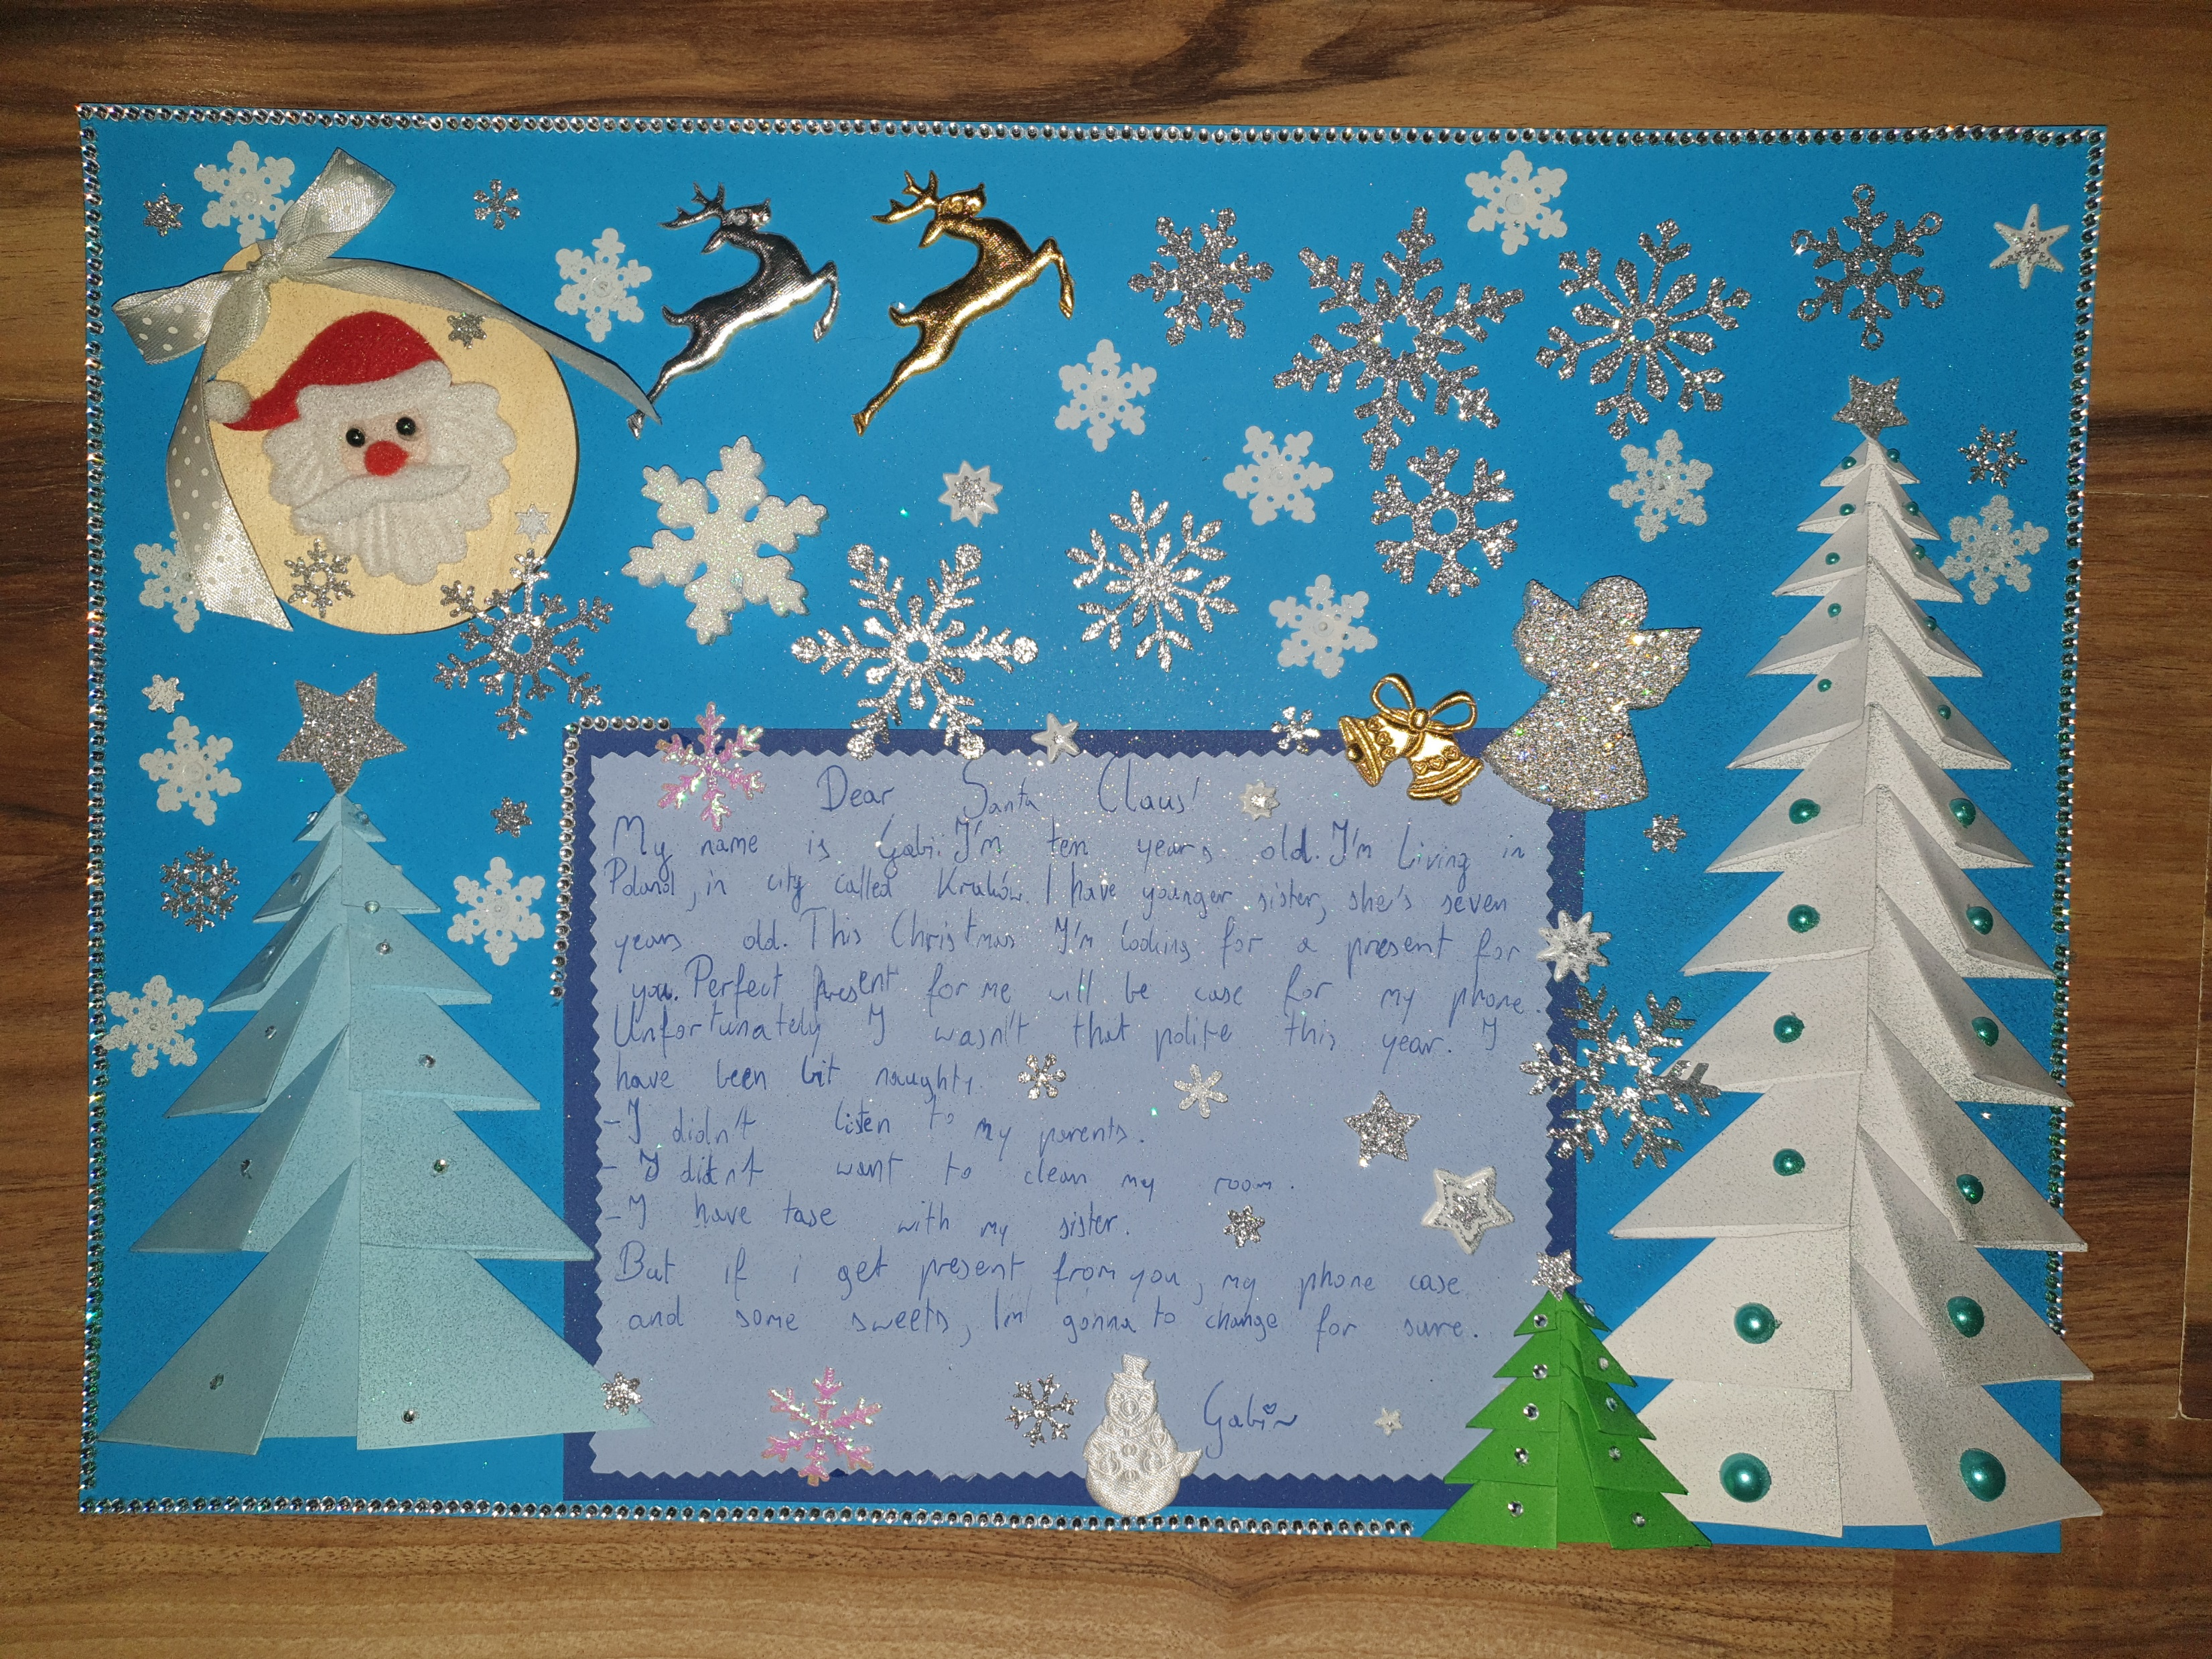 Dear Santa Claus!
My name is Gabi. I'm ten years old. I'm living in
Poland, in city called Kraków. I have younger sister, she's seven
years old. This Christmas I'm looking for a present for
you. Perfect present for me will be case for my phone.
Unfortunately I wasn't that polite this year. I
have been bit naughty.
-I didn't listen to my parents.
- I didnt want to clean my room.
-I have tase with my sister.
But if i get present from you, my phone case
and some sweets, Im gonna to change for sure.
Gabi